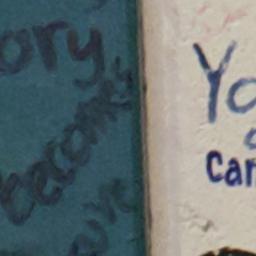 ory
becomes
Yo
Can